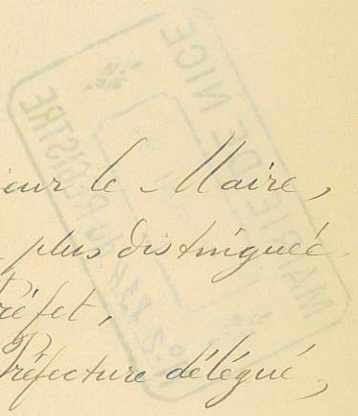 MAIRIE DE NICE
ieur le Maire,
plus distinguée
réfet,
Préfecture délégué,